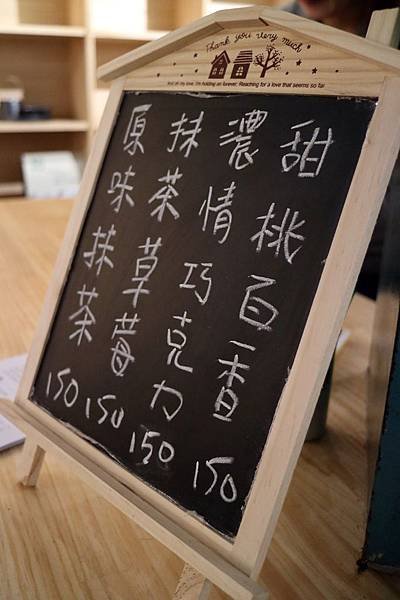 Thank you very much
And oh my love. I'm holding on forever. Reaching for a love that seems so far
甜桃百香 150
濃情巧克力 150
抹茶草莓 150
原味抹茶 150